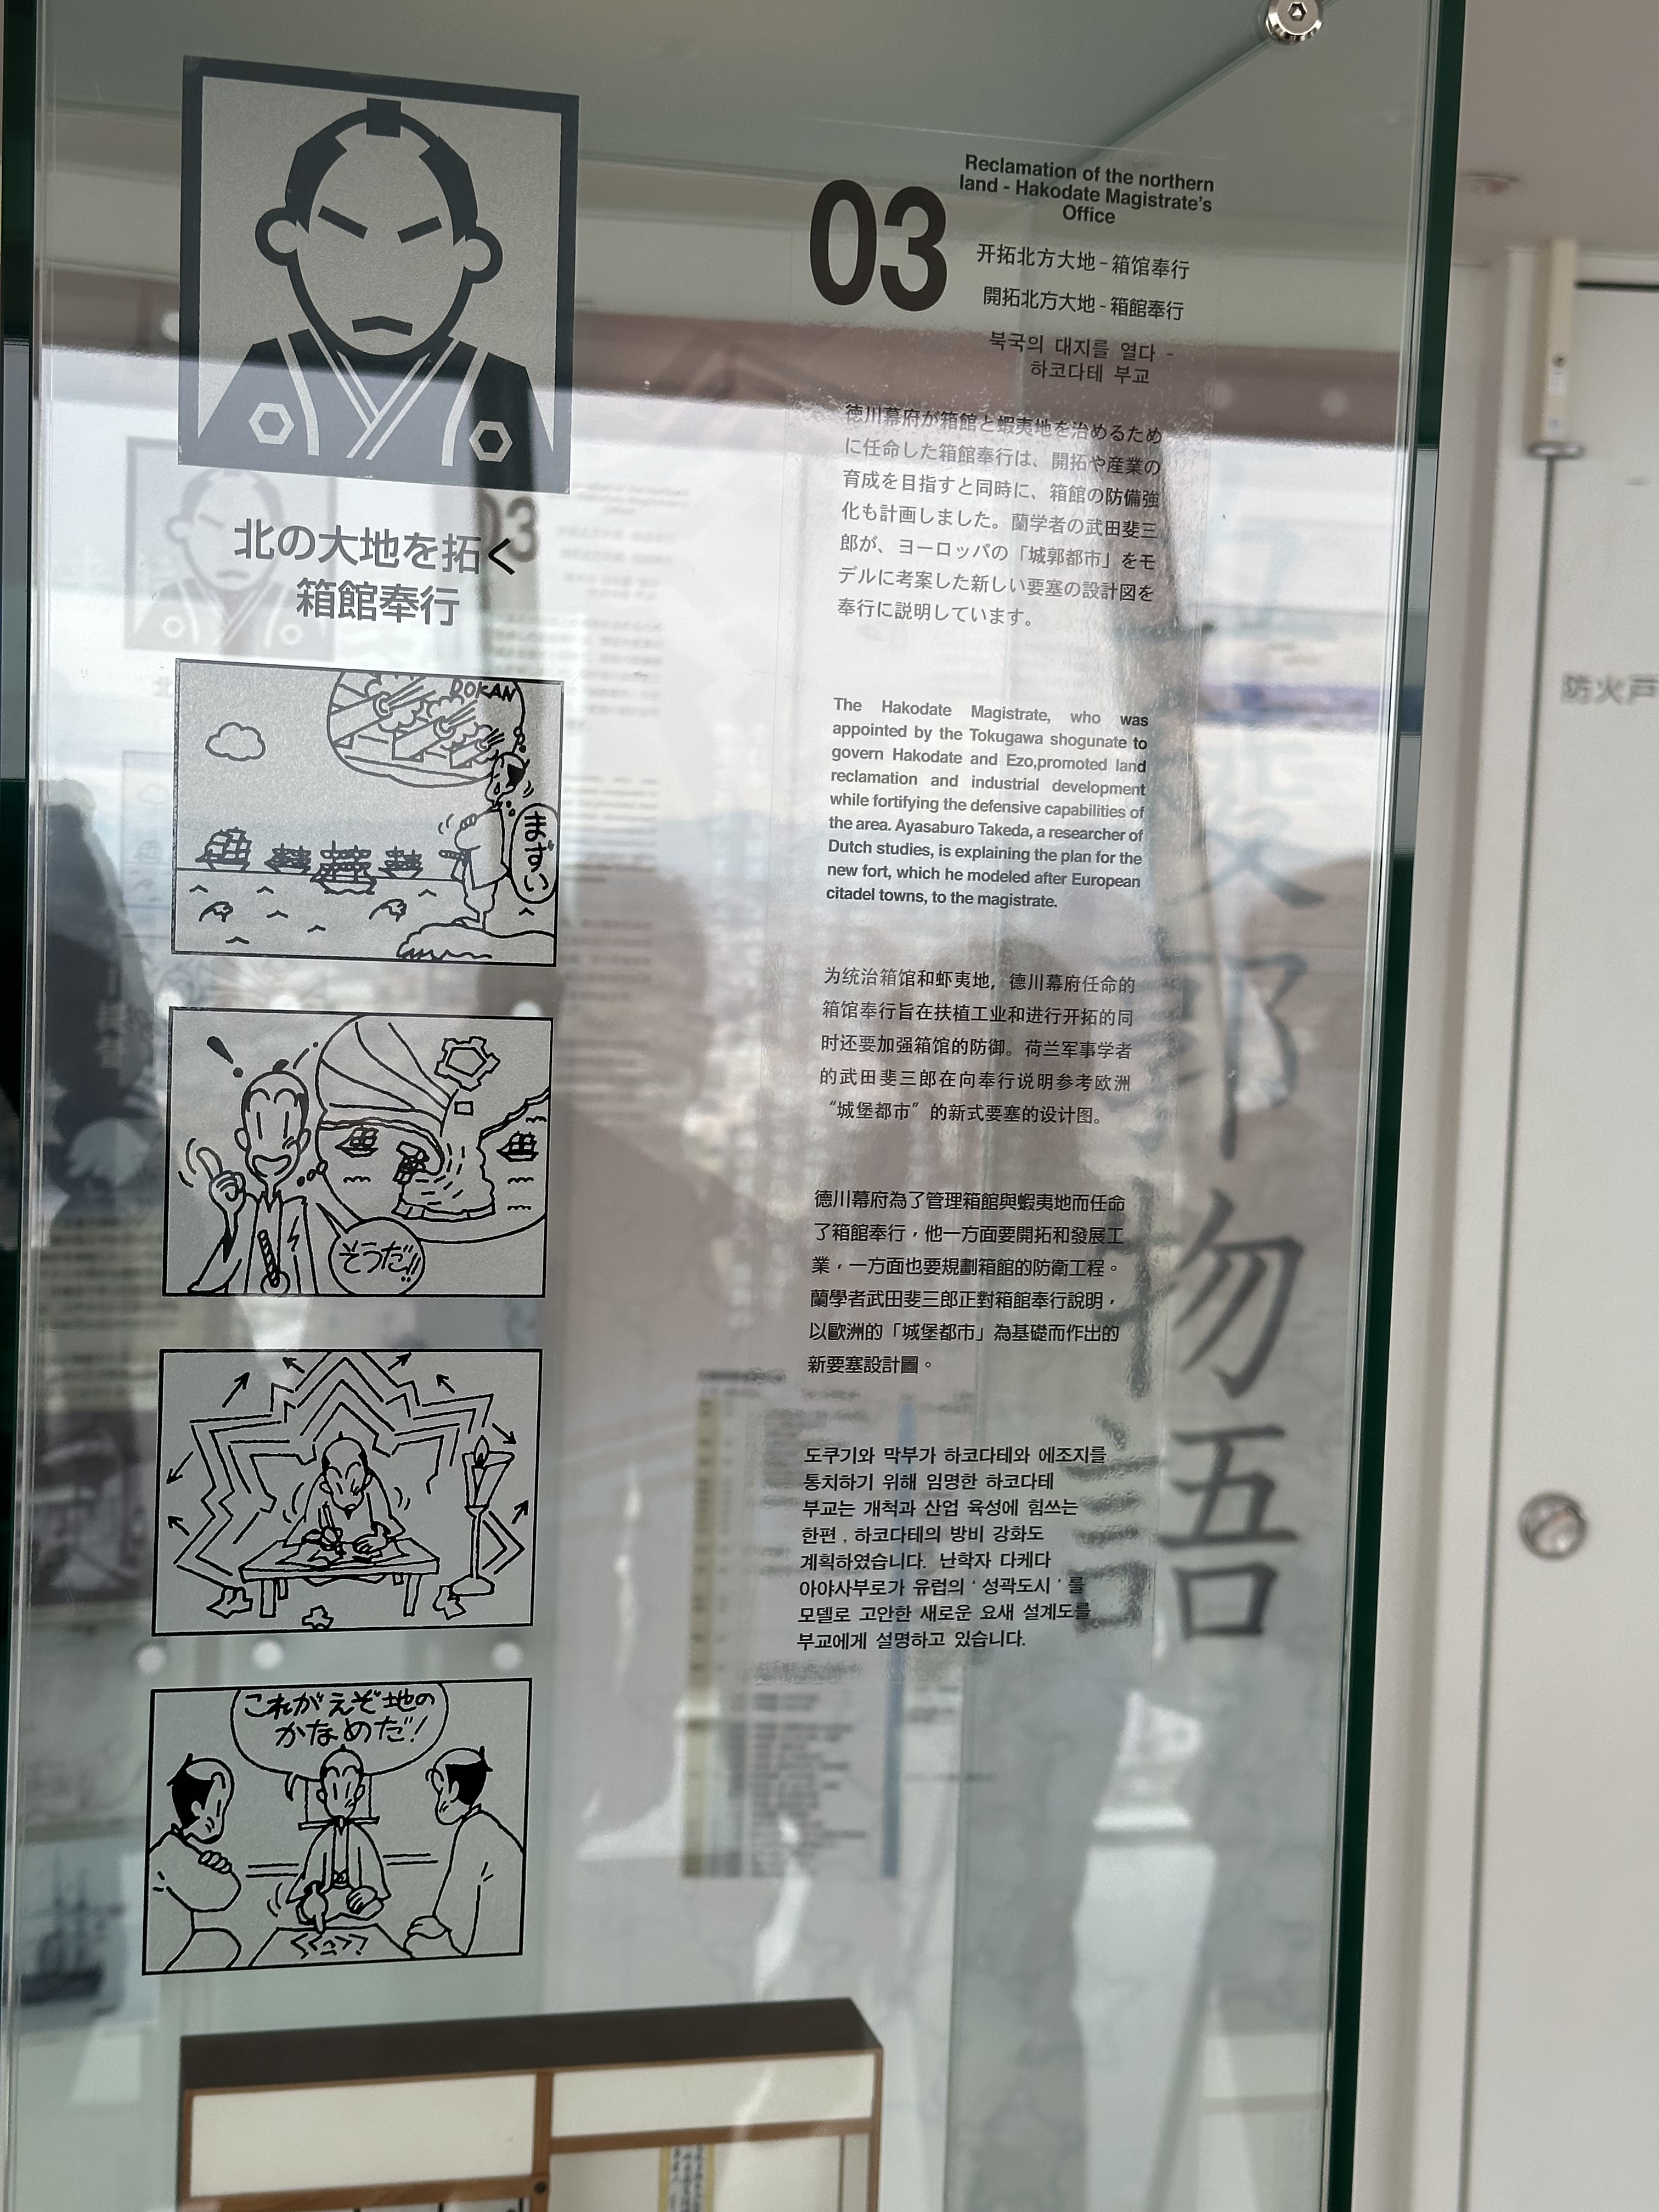 北の大地を拓く
箱館奉行
DOKAN
まずい
そうだ!!
これがえぞ地の
かなめだ!
03
Reclamation of the northern
land - Hakodate Magistrate's
Office
开拓北方大地-箱馆奉行
開拓北方大地-箱館奉行
북국의 대지를 열다 -
하코다테 부교
徳川幕府が箱館と蝦夷地を治めるため
に任命した箱館奉行は、開拓や産業の
育成を目指すと同時に、箱館の防備強
化も計画しました。蘭学者の武田斐三
郎が、ヨーロッパの「城郭都市」をモ
デルに考案した新しい要塞の設計図を
奉行に説明しています。
The Hakodate Magistrate, who was
appointed by the Tokugawa shogunate to
govern Hakodate and Ezo,promoted land
reclamation and industrial development
while fortifying the defensive capabilities of
the area. Ayasaburo Takeda, a researcher of
Dutch studies, is explaining the plan for the
new fort, which he modeled after European
citadel towns, to the magistrate.
为统治箱馆和虾夷地，德川幕府任命的
箱馆奉行旨在扶植工业和进行开拓的同
时还要加强箱馆的防御。荷兰军事学者
的武田斐三郎在向奉行说明参考欧洲
“城堡都市”的新式要塞的设计图。
德川幕府為了管理箱館與蝦夷地而任命
了箱館奉行，他一方面要開拓和發展工
業，一方面也要規劃箱館的防衛工程。
蘭學者武田斐三郎正對箱館奉行說明，
以歐洲的「城堡都市」為基礎而作出的
新要塞設計圖。
도쿠기와 막부가 하코다테와 에조지를
통치하기 위해 임명한 하코다테
부교는 개척과 산업 육성에 힘쓰는
한편 , 하코다테의 방비 강화도
계획하였습니다. 난학자 다케다
아야사부로가 유럽의 ' 성곽도시 ' 를
모델로 고안한 새로운 요새 설계도를
부교에게 설명하고 있습니다.
郭物語
防火戸